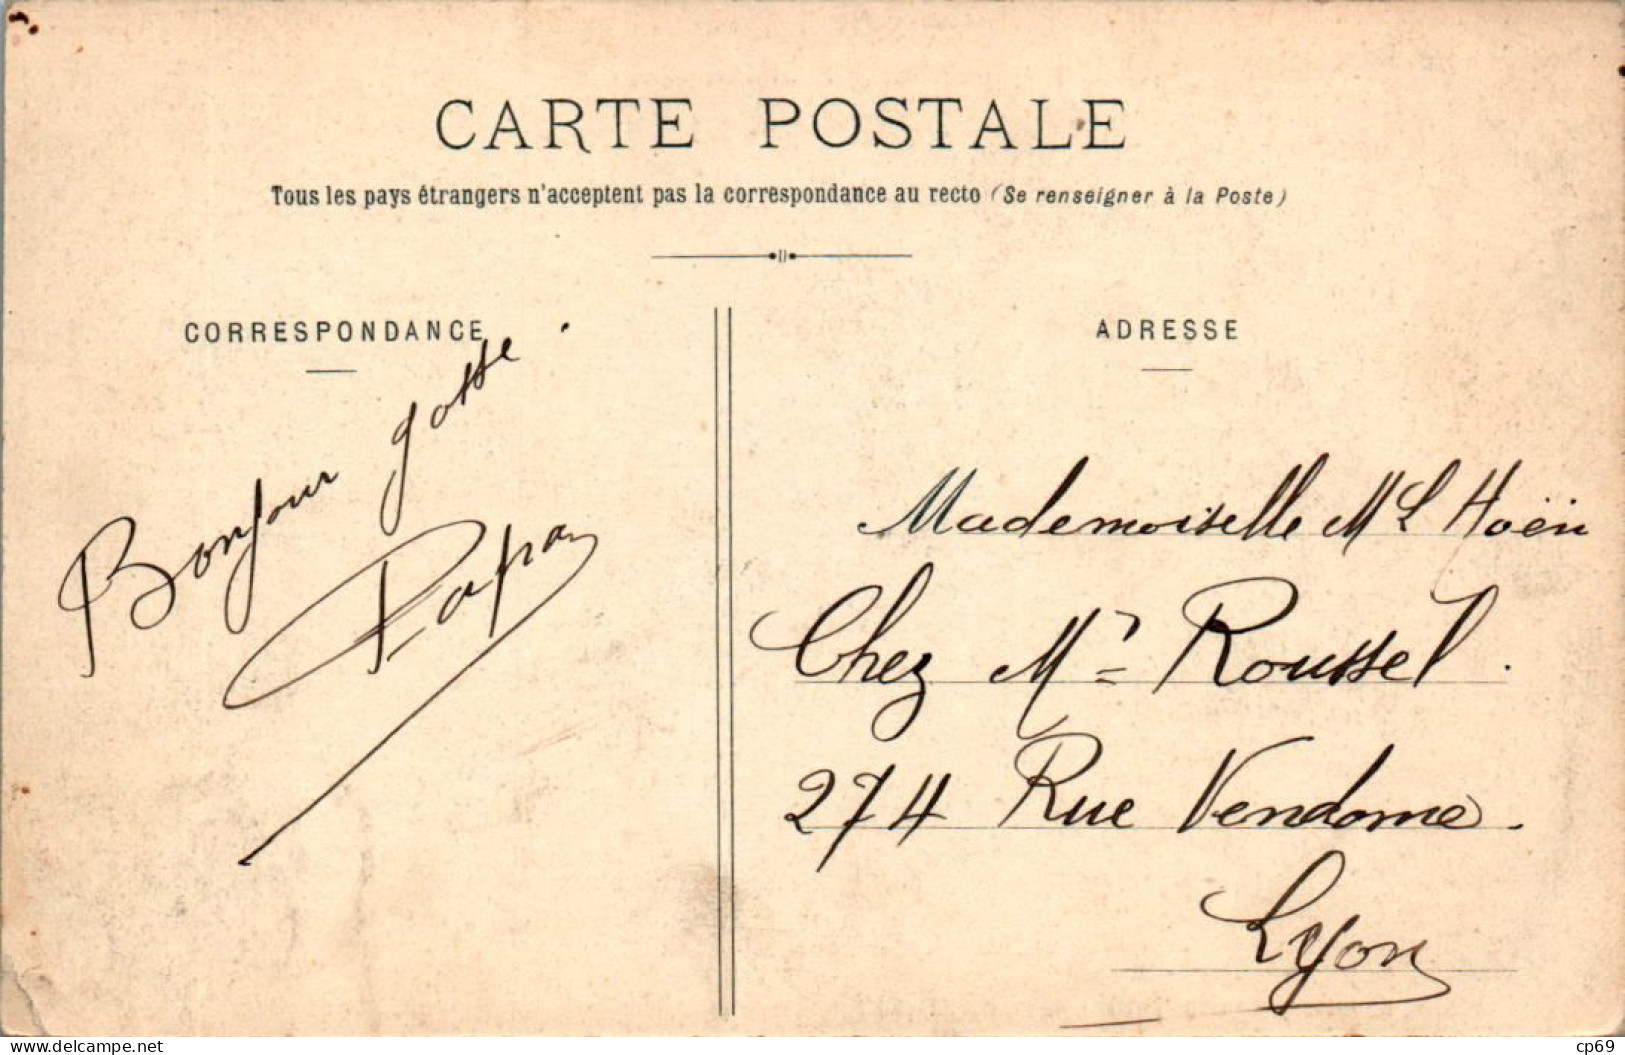 CARTE POSTALE
Tous les pays étrangers n'acceptent pas la correspondance au recto (Se renseigner à la Poste)
CORRESPONDANCE
Bonjour gosse.
ADRESSE
Mademoiselle M L Hoën
Chez Mr Roussel.
274 Rue Vendome.
Lyon
www.delcampe.net
cp69